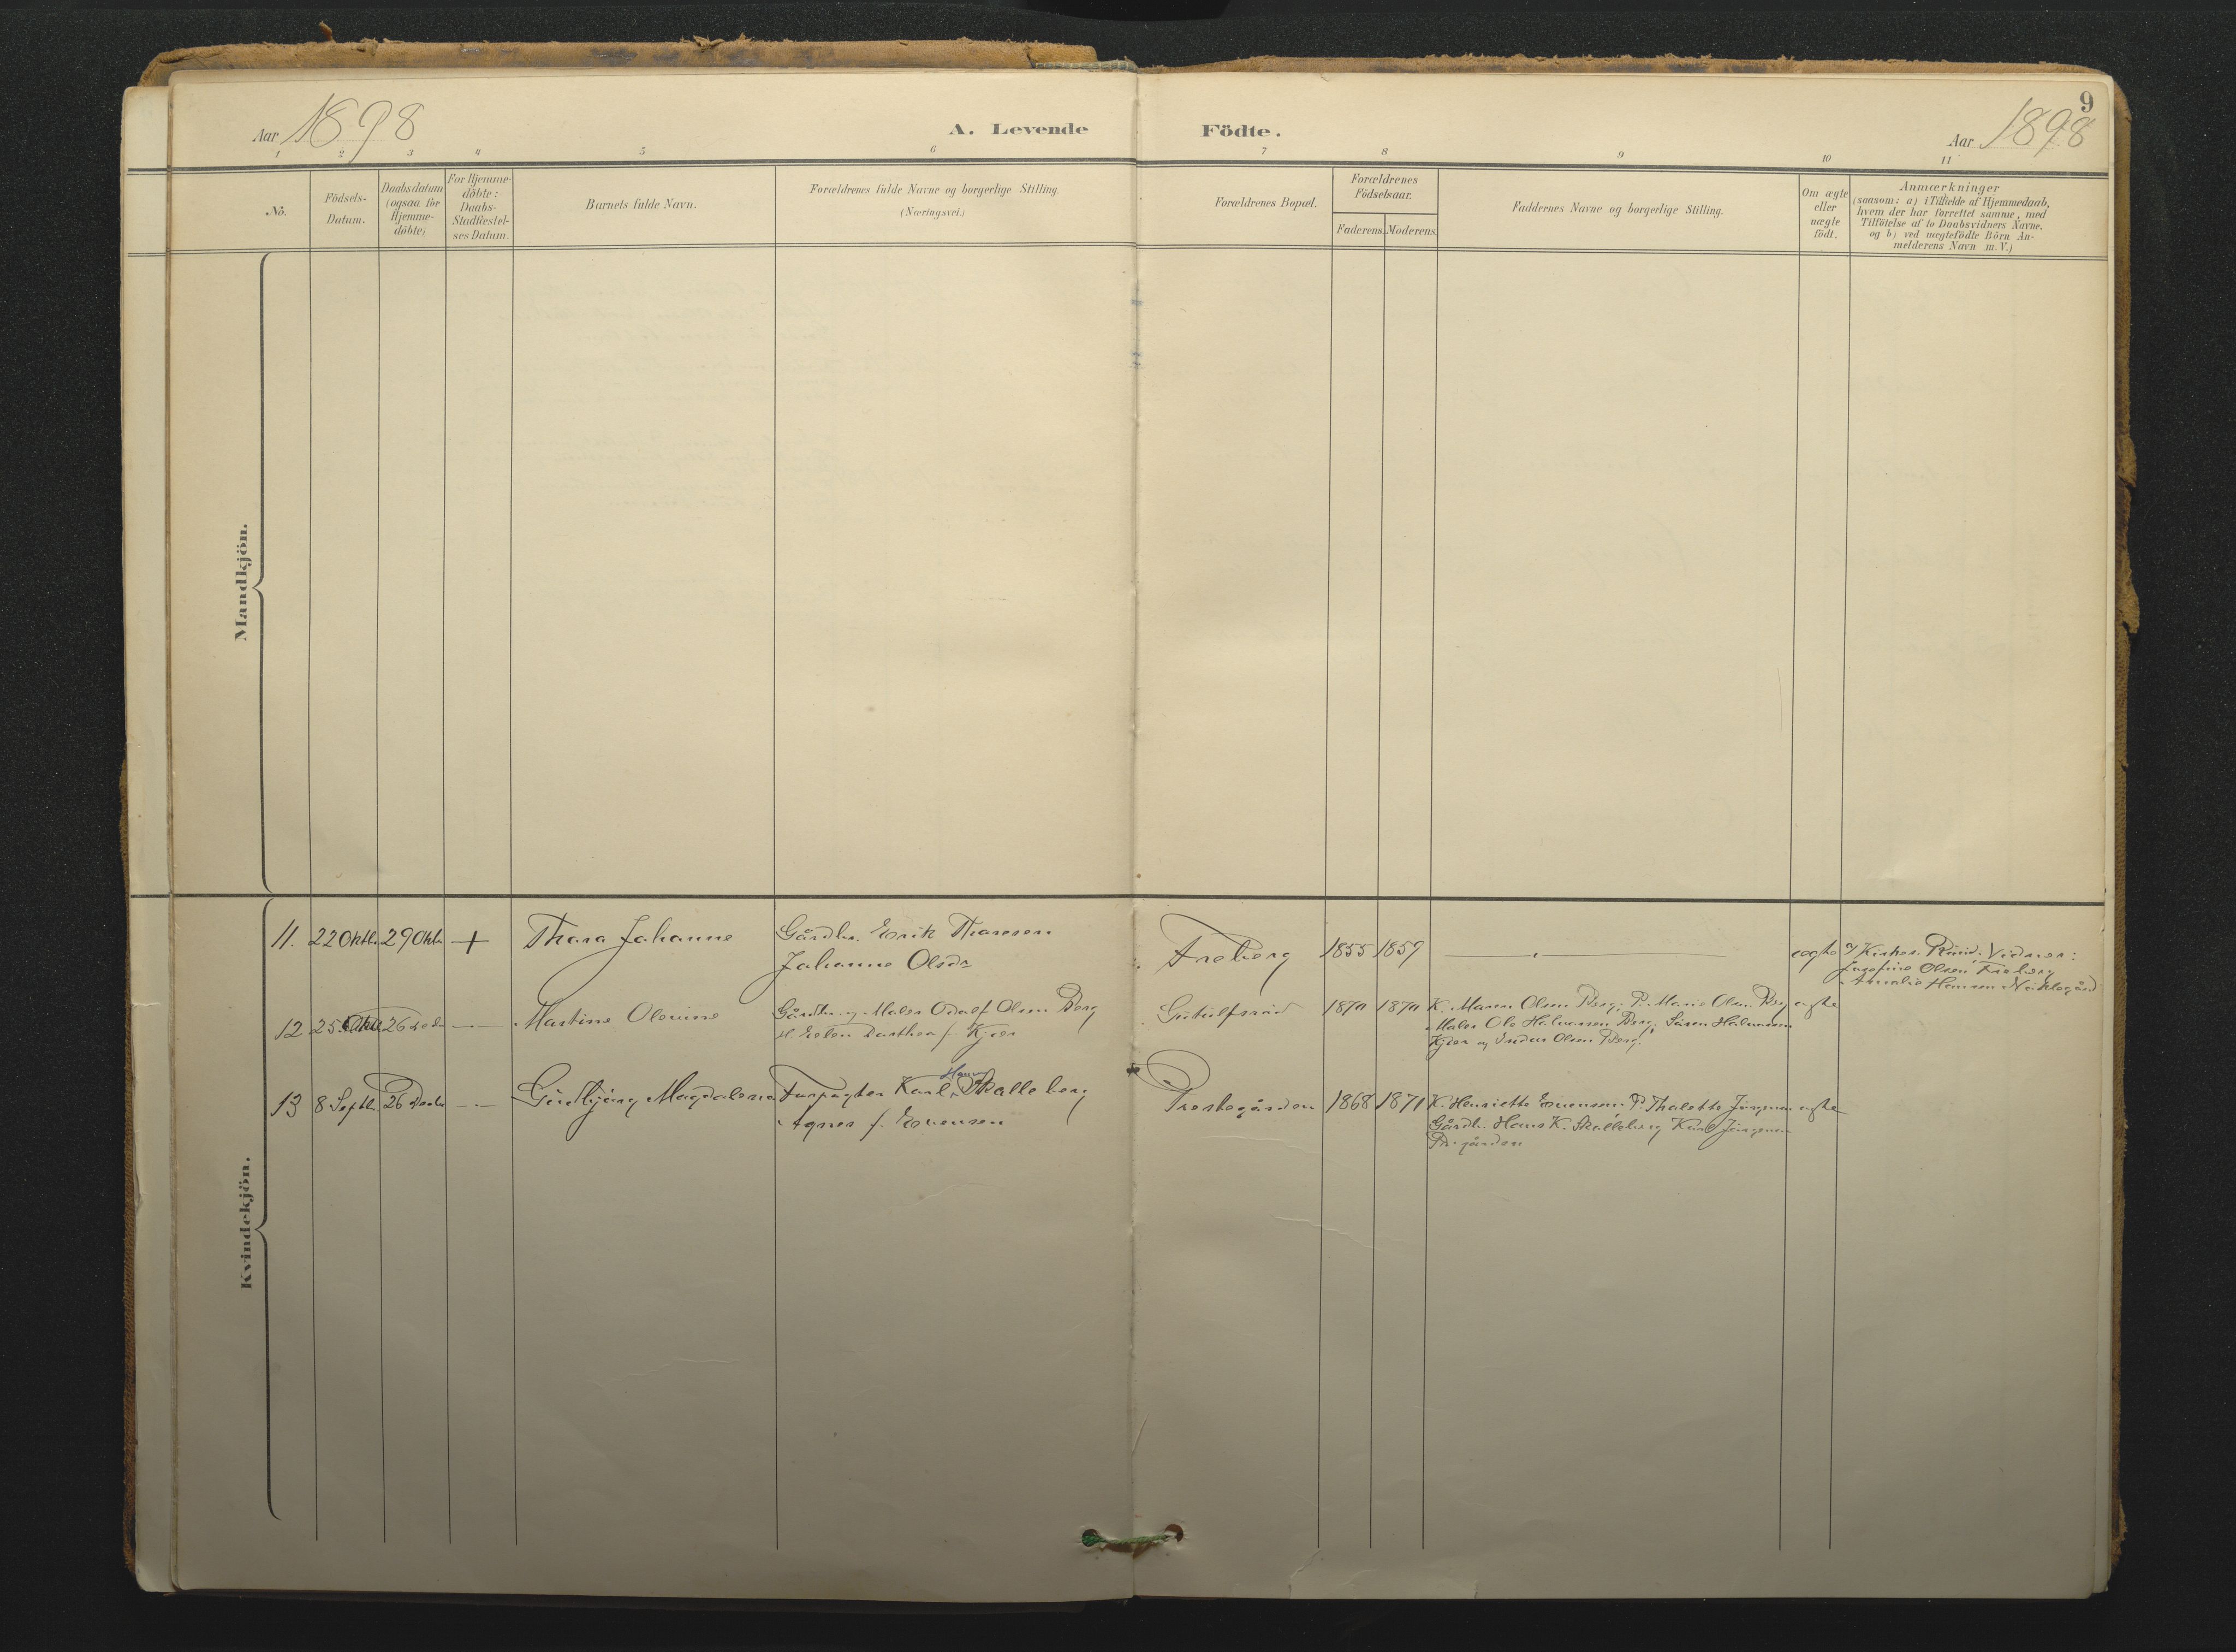 Aar 1898
A. Levende Födte.
9
Aar 1898
1 2 3 4 5 6 7 8 9 10 11
No.
Födsels-
Datum.
Daabsdatum
(ogsaa for
Hjemme-
döbte)
For Hjemme-
döbte:
Daabs-
Stadfæstel-
ses Datum.
Barnets fulde Navn.
Forældrenes fulde Navne og borgerlige Stilling.
(Næringsvei.)
Forældrenes Bopæl.
Forældrenes
Födselsaar.
Faderens. Moderens.
Faddernes Navne og borgerlige Stilling.
Om ægte
eller
uægte
födt.
Anmærkninger
(saasom: a) i Tilfælde af Hjemmedaab,
hvem der har forrettet samme, med
Tilföielse af to Daabsvidners Navne.
og b) ved uægtefödte Börn An-
melderens Navn m. V.)
Mandkjön.
Kvindekjön.
11. 22 Oktb. 29 Oktb. + Thora Johanne
Gårdbr. Erik Thoresen
Johanne Olsdr
Freberg 1855 1857
ægte
Vidner:
Josefine Olsen, Freberg
Amalie Hansen
12 25 Oktb. 26 Decbr — Martine Olevine
Gårdbr. og Maler Odolf Olsen Berg
Dorthea f. Kjær
1870 1870
K. Maren Olsen Berg; P. Marie Olsen Berg
ægte
Maler Ole Halvorsen Berg; Sören Halvorsen
Kjær og Olsen Berg.
13 8 Septb. 26 Decbr — Gudbjörg Magdalena
Forpagter Karl Hansen Skalleberg
Agnes f. Evensen
Prestegården 1868 1871
K. Henriette Evensen. P. Thalette Jörgensen
ægte
Gårdb. Hans K. Skalleberg Karl Jörgensen
Pr.gården